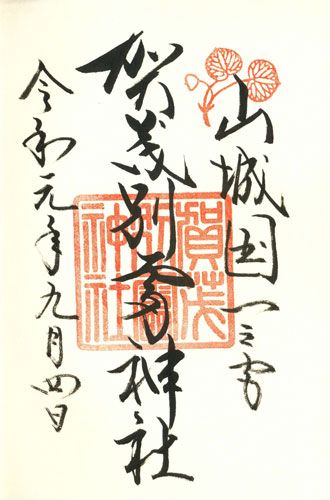 山城国一之宮
賀茂別雷神社
令和元年九月四日
賀茂
別雷
神社